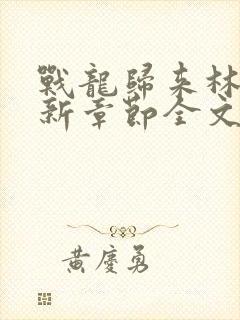 戰龍歸來林
新章節全文
黃慶勇